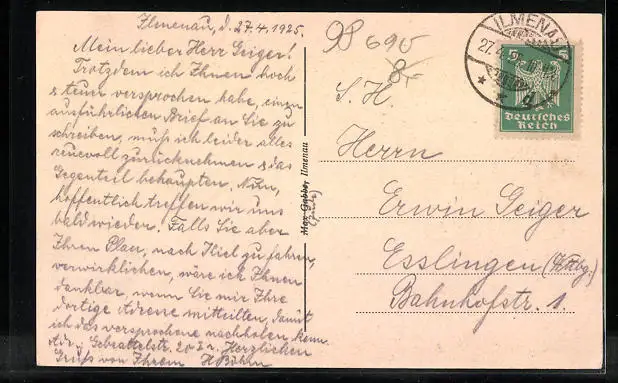 Ilmenau, d. 27.4.1925.
Mein lieber Herr Geiger!
Trotzdem ich Ihnen hoch
& teuer versprochen habe, einen
ausführlichen Brief an Sie zu
schreiben, muß ich leider alles
reuevoll zurücknehmen & das
Gegenteil behaupten. Nun,
hoffentlich treffen wir uns
bald wieder. Falls Sie aber
Ihren Plan, nach Kiel zu fahren,
verwirklichen, wäre ich Ihnen
dankbar, wenn Sie mir Ihre
dortige Adresse mitteilten, damit
ich das versprochene nachholen kann.
Adr.: 20 I r. Herzlichen
Gruß von Ihrem H. Böhn
Max Gabbe, Ilmenau
690
8
ILMENAU
27.4
5 5
Deutsches
Reich
S. H.
Herrn
Erwin Geiger
Esslingen (Wttbg.)
Bahnhofstr. 1.